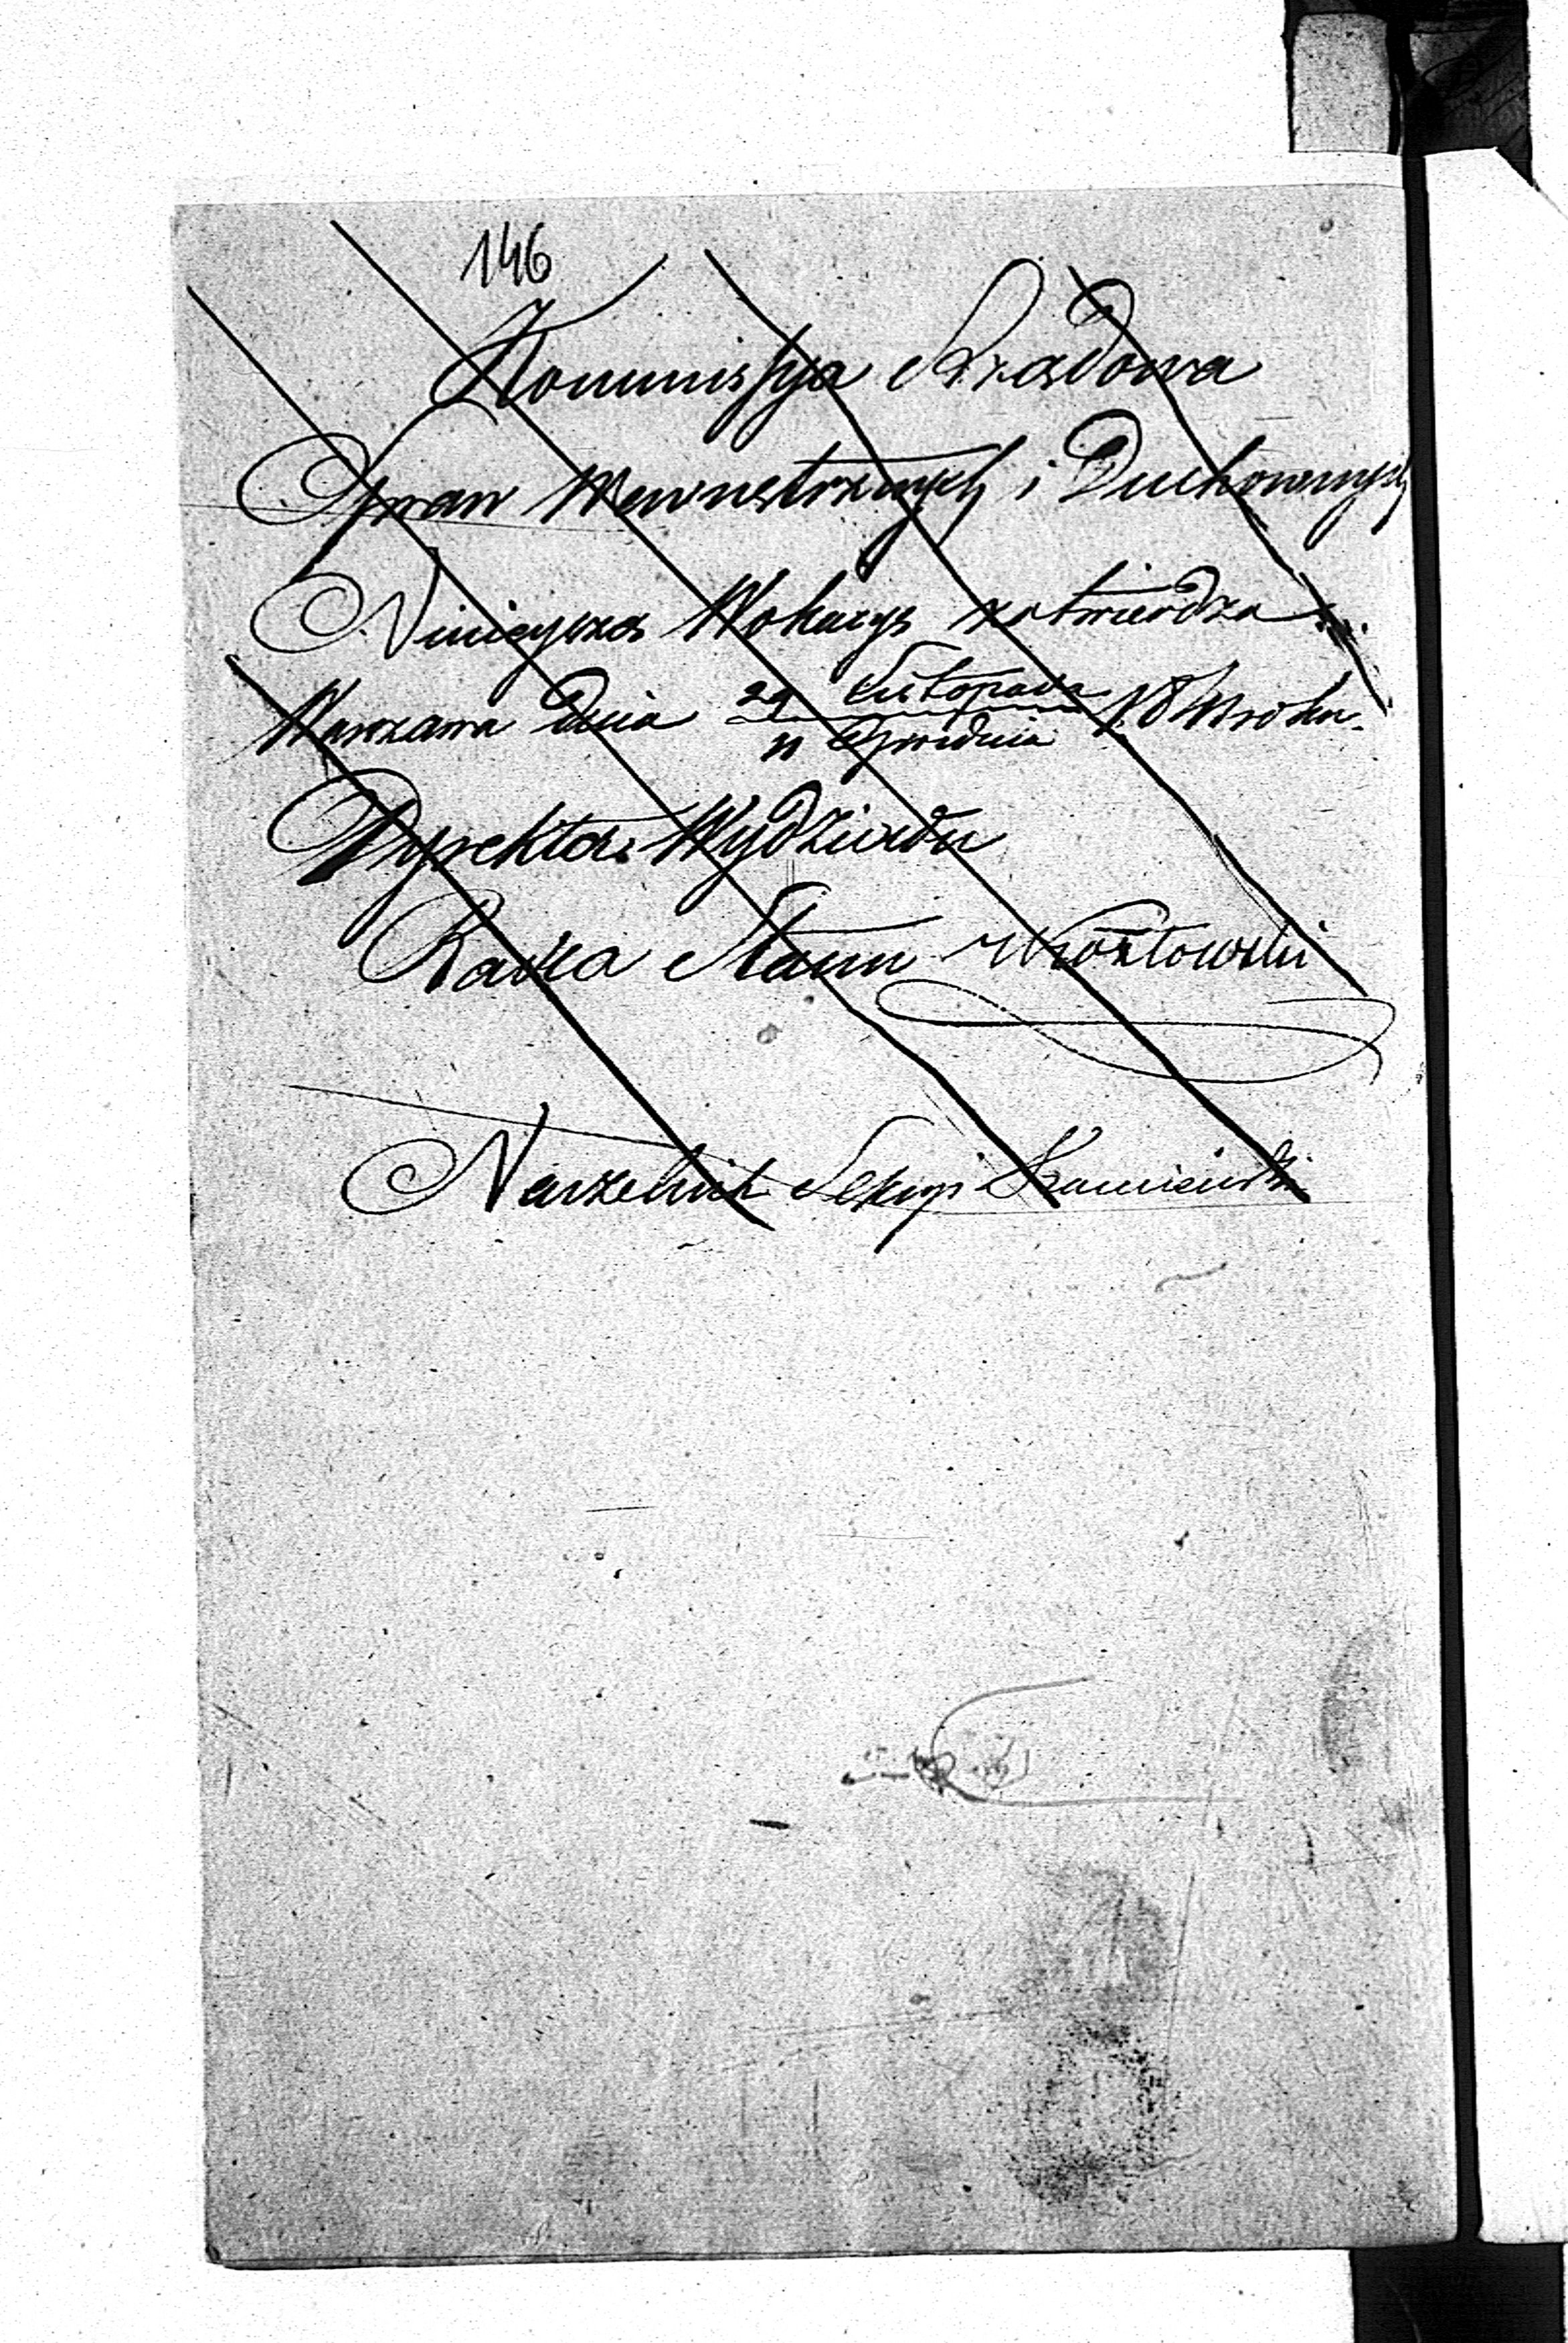 146
Kommissya Rządowa
Spraw Wewnętrznych i Duchownych
Niniejszą Wokacyę zatwierdza
Warszawa Dnia 29 Listopada
11 Grudnia
Dyrektor Wydziału
Radca Stanu
Naczelnik Sekcyi